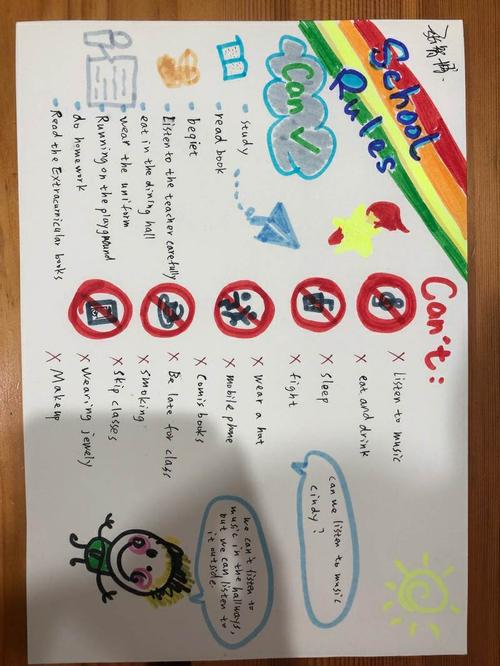 School
Rules
Can √
study
read book
beqiet
Listen to the teacher carefully
eat in the dining hall
wear the uniform
Running on the playground
do homework
Read the Extracurricular books
Can't:
X Listen to music
X eat and drink
X sleep
X fight
X wear a hat
X mobile phone
X Comis books
X Be late for class
X smoking
X skip classes
X wearing jewely
X Makeup
can we listen to music
cindy?
we can't listen to
music in the hallways,
but we can listen to
it outside.